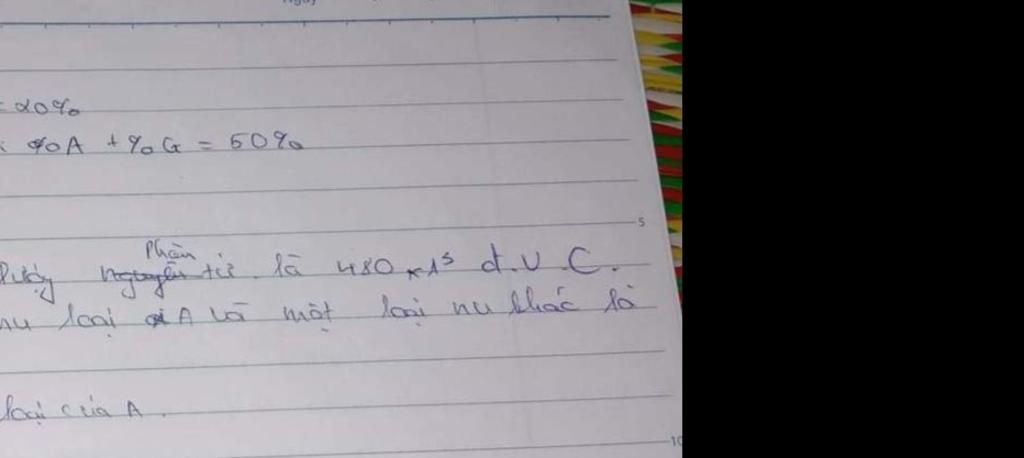 = 20%
: %A + %G = 50%
phân
lượng tử là 480 × 1⁵ đ.V.C.
nu loại A và một loại nu khác là
loại của A.
5
10